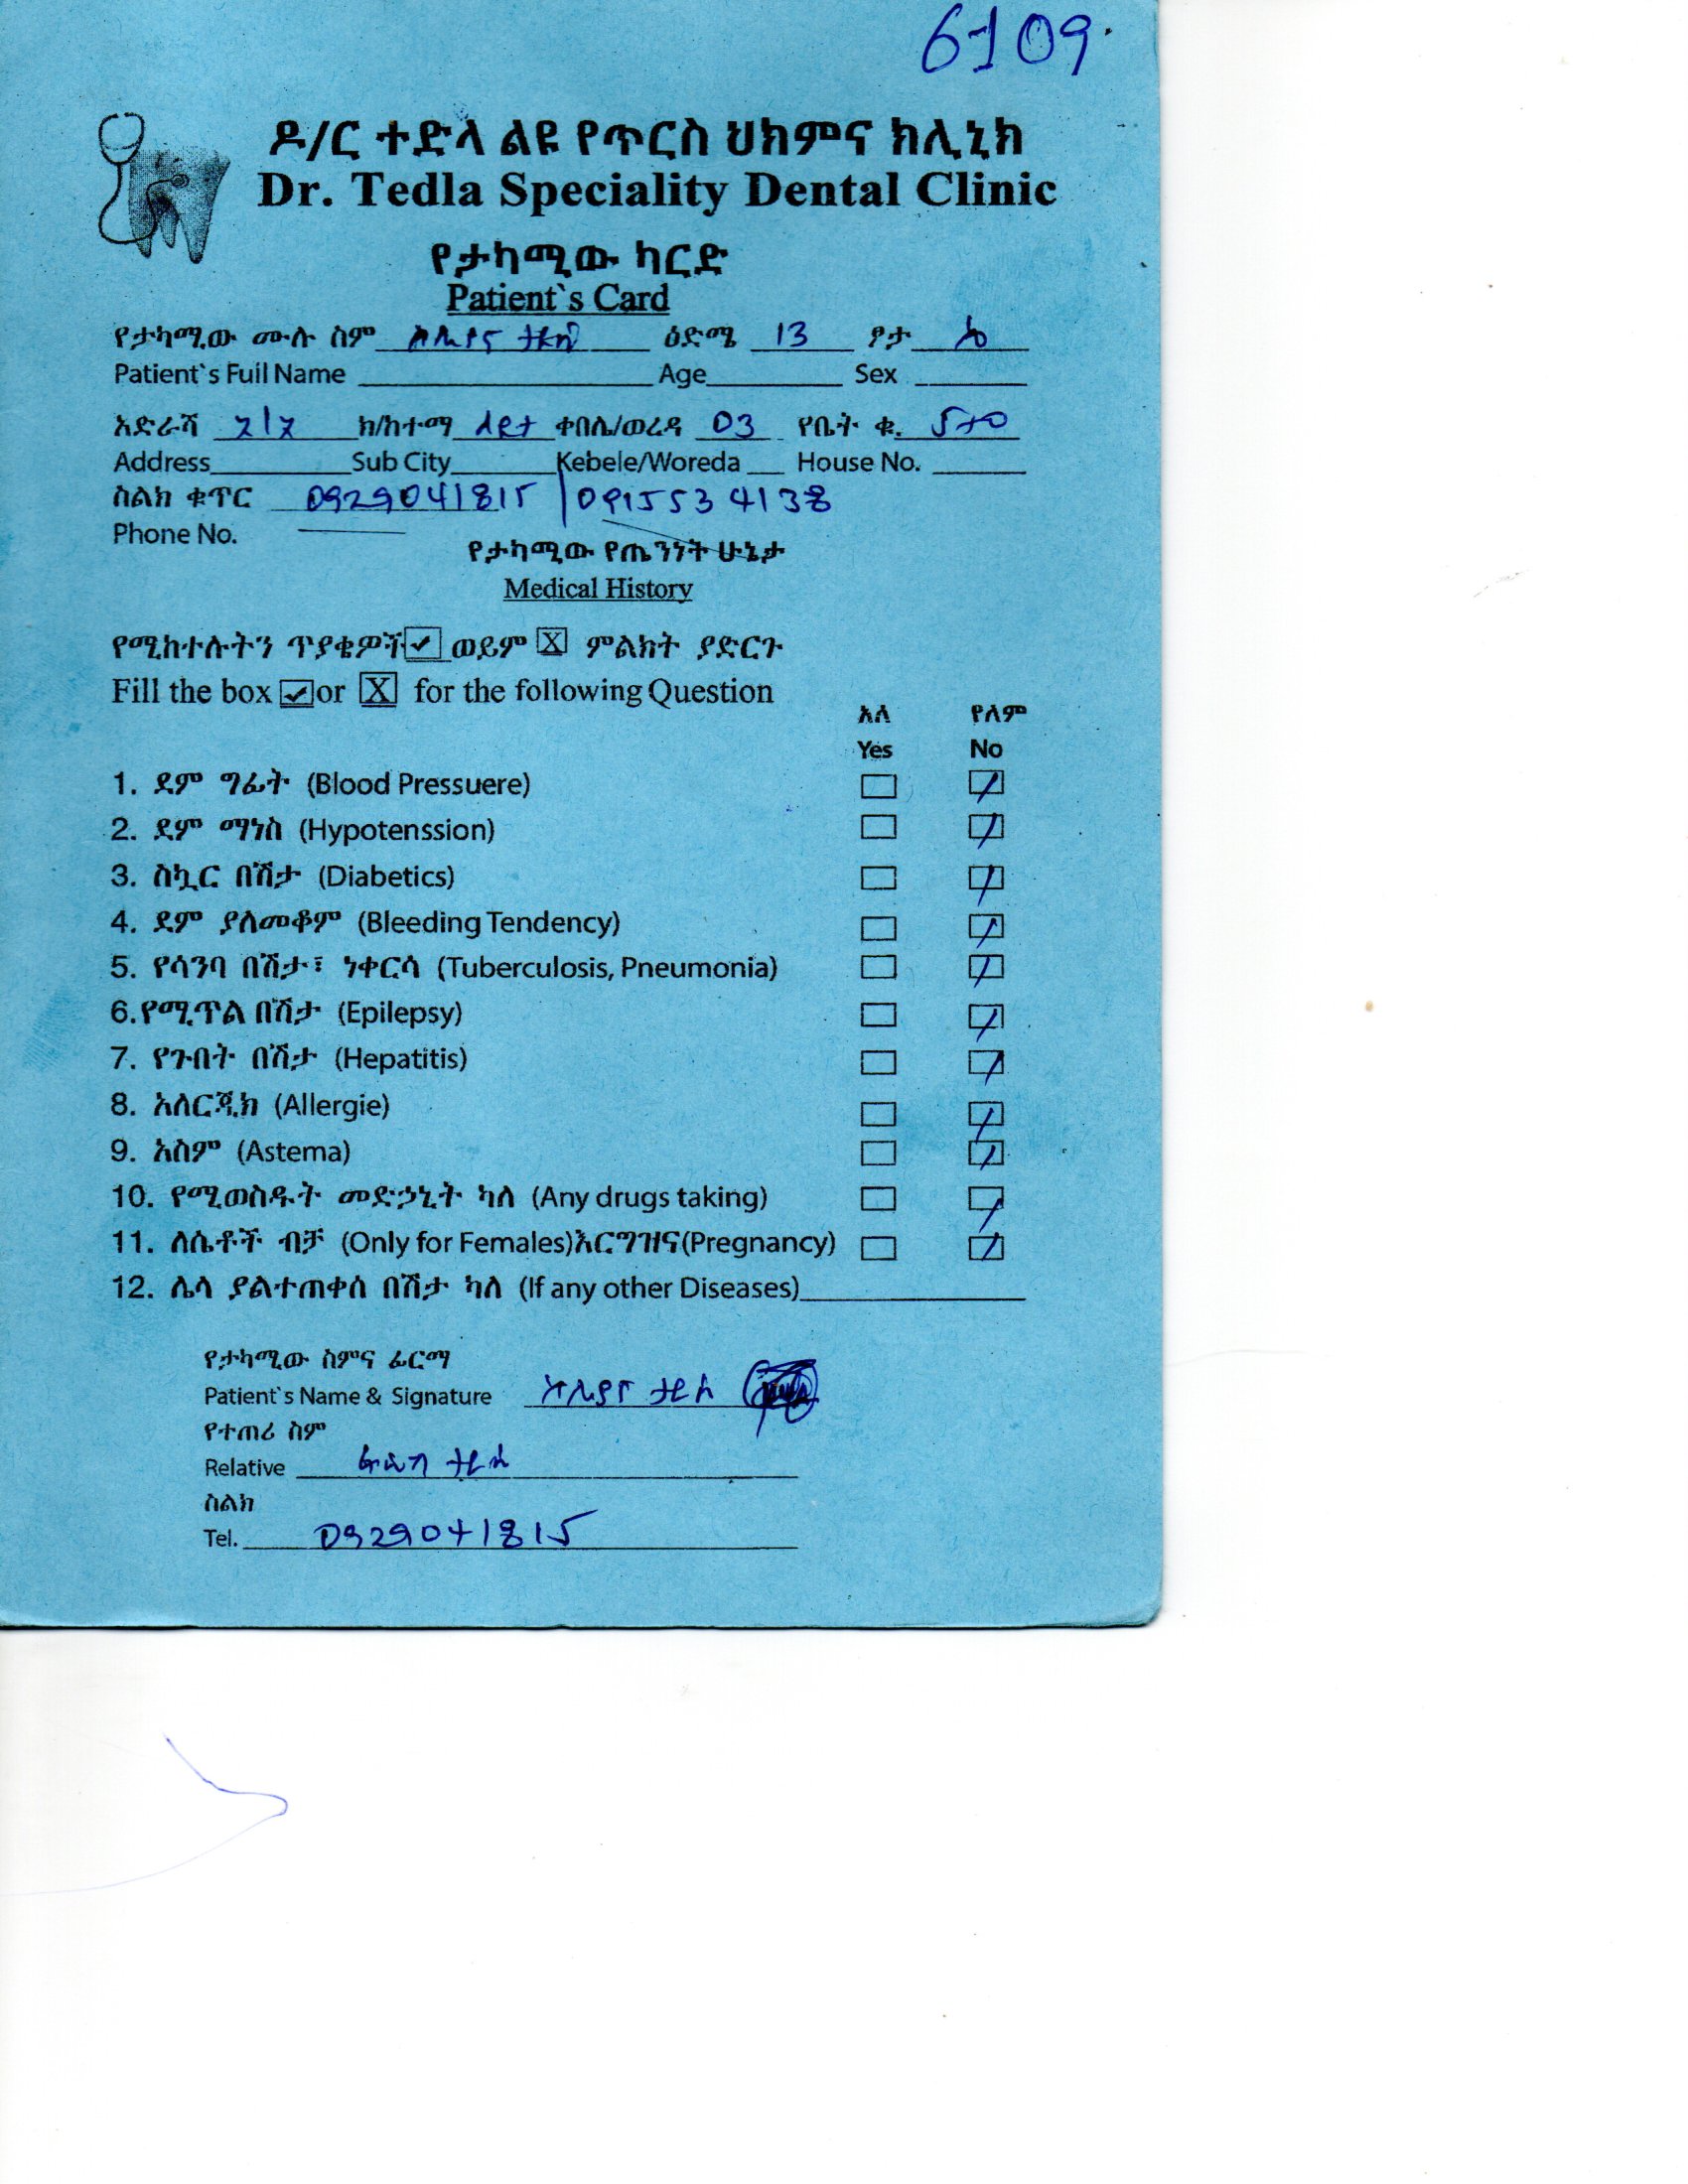 6109
ዶ/ር ተድላ ልዩ የጥርስ ህክምና ክሊኒክ
Dr. Tedla Speciality Dental Clinic
የታካሚው ካርድ
Patient`s Card
የታካሚው ሙሉ ስም ዕድሜ 13 ፆታ
Patient`s Fuil Name Age Sex
አድራሻ ክ/ከተማ ቀበሌ/ወረዳ 03 የቤት ቁ.
Address Sub City Kebele/Woreda House No.
ስልክ ቁጥር 0929041815 / 0915534138
Phone No.
የታካሚው የጤንነት ሁኔታ
Medical History
የሚከተሉትን ጥያቄዎች ✓ ወይም X ምልክት ያድርጉ
Fill the box ✓ or X for the following Question
አለ የለም
Yes No
1. ደም ግፊት (Blood Pressuere)
2. ደም ማነስ (Hypotenssion)
3. ስኳር በሽታ (Diabetics)
4. ደም ያለመቆም (Bleeding Tendency)
5. የሳንባ በሽታ፣ ነቀርሳ (Tuberculosis, Pneumonia)
6. የሚጥል በሽታ (Epilepsy)
7. የጉበት በሽታ (Hepatitis)
8. አለርጂክ (Allergie)
9. አስም (Astema)
10. የሚወስዱት መድኃኒት ካለ (Any drugs taking)
11. ለሴቶች ብቻ (Only for Females)እርግዝና(Pregnancy)
12. ሌላ ያልተጠቀሰ በሽታ ካለ (If any other Diseases)
የታካሚው ስምና ፊርማ
Patient`s Name & Signature
የተጠሪ ስም
Relative
ስልክ
Tel. 0929041815